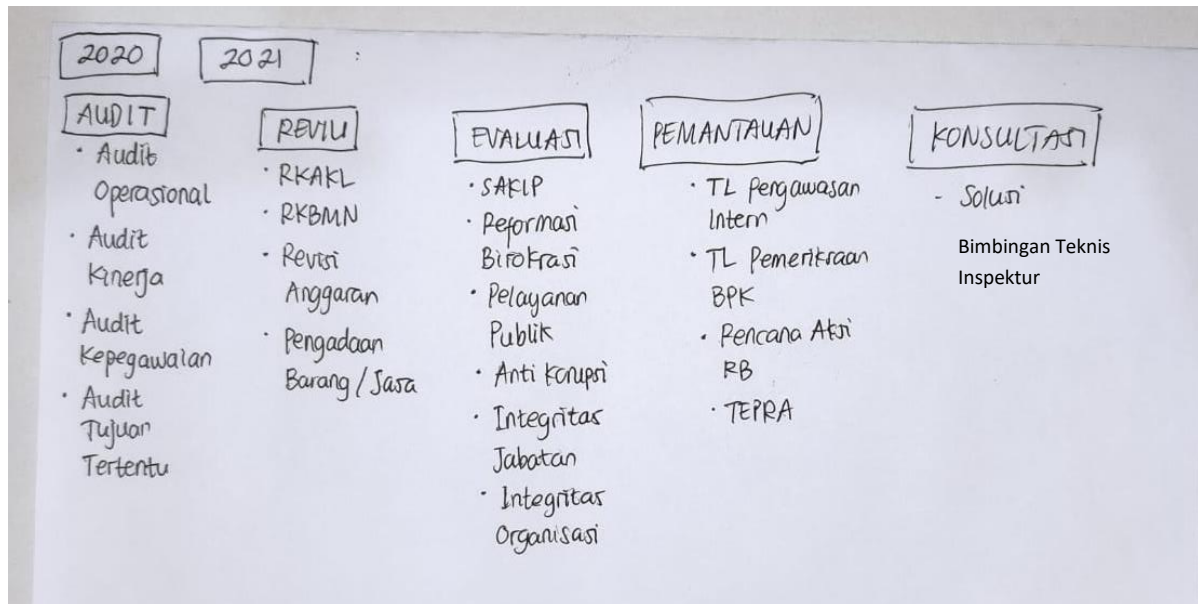 2020
2021 :
AUDIT
• Audit
Operasional
• Audit
Kinerja
• Audit
Kepegawaian
• Audit
Tujuan
Tertentu
REVIU
• RKAKL
• RKBMN
• Revisi
Anggaran
• Pengadaan
Barang / Jasa
EVALUASI
• SAKIP
• Reformasi
Birokrasi
• Pelayanan
Publik
• Anti Korupsi
• Integritas
Jabatan
• Integritas
Organisasi
PEMANTAUAN
• TL Pengawasan
Intern
• TL Pemeriksaan
BPK
• Rencana Aksi
RB
• TEPRA
KONSULTASI
- Solusi
Bimbingan Teknis
Inspektur